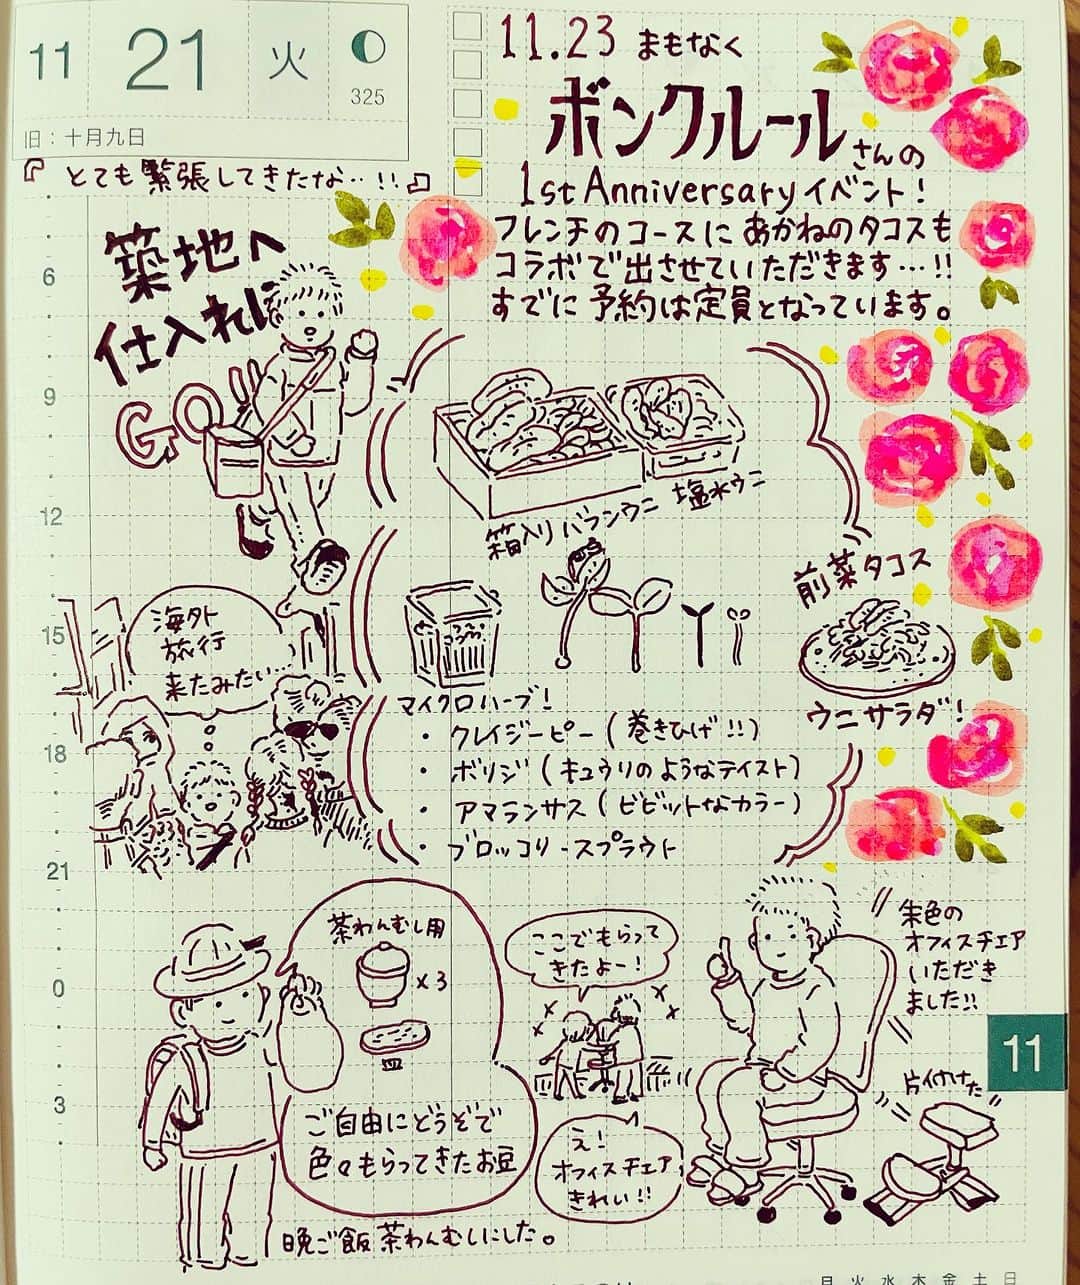 11 21 火
325
旧：十月九日
『とても緊張してきたな‥!!』
11.23 まもなく
ボンクルールさんの
1st Anniversaryイベント！
フレンチのコースにあかねのタコスも
コラボで出させていただきます…!!
すでに予約は定員となっています。
築地へ
仕入れに
GO!!
6
9
12
15
18
21
0
3
箱入りバランウニ
塩水ウニ
前菜タコス
ウニサラダ！
マイクロハーブ！
・クレイジーピー（巻きひげ!!）
・ボリジ（キュウリのようなテイスト）
・アマランサス（ビビットなカラー）
・ブロッコリースプラウト
海外
旅行
来たみたい…
茶わんむし用
×3
皿
ご自由にどうぞで
色々もらってきたお豆
晩ご飯 茶わんむしにした。
ここでもらって
きたよー！
え！
オフィスチェア
きれい!!
朱色の
オフィスチェア
いただき
ました!!
片付けた
11
月 火 水 木 金 土 日